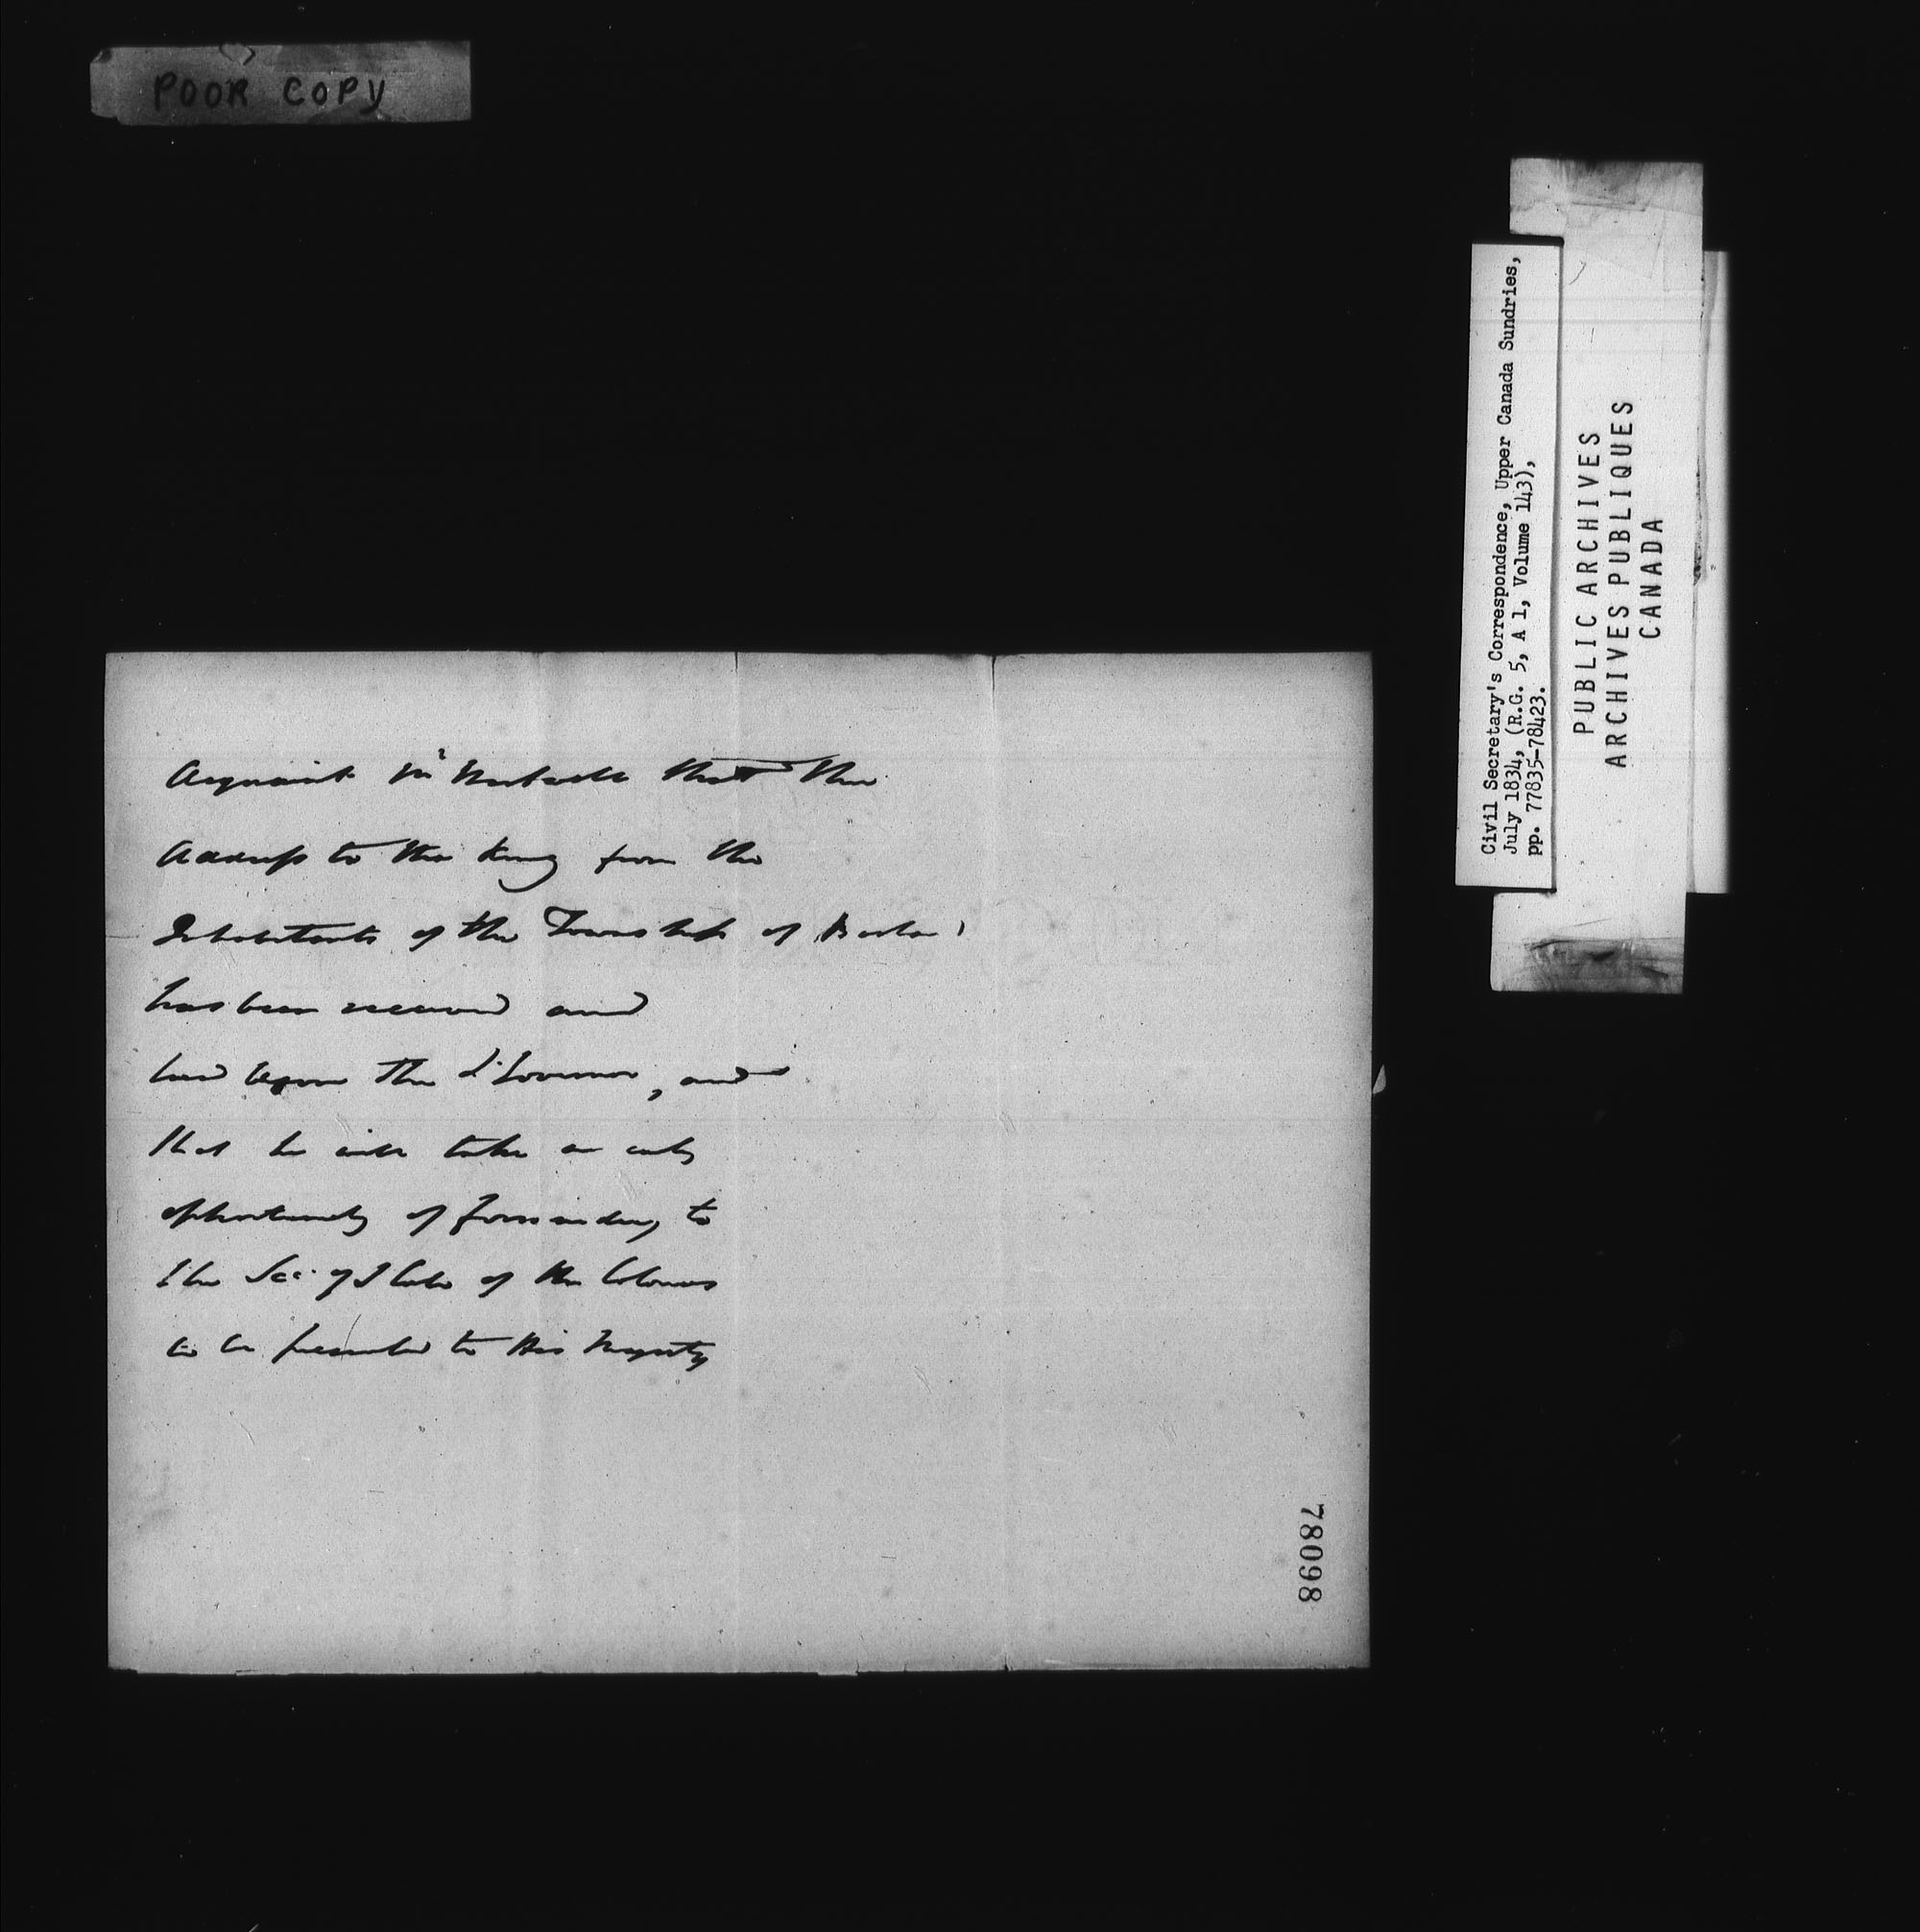 POOR COPY
Acquaint Mr that the
Address to the King from the
Inhabitants of the Township of
has been received and
laid before the Lt Governor, and
that he will take an early
opportunity of forwarding to
the Sec. of State of the Colonies
to be presented to His Majesty
78098
Civil Secretary's Correspondence, Upper Canada Sundries,
July 1834, (R.G. 5, A 1, Volume 143),
pp. 77835-78423.
PUBLIC ARCHIVES
ARCHIVES PUBLIQUES
CANADA